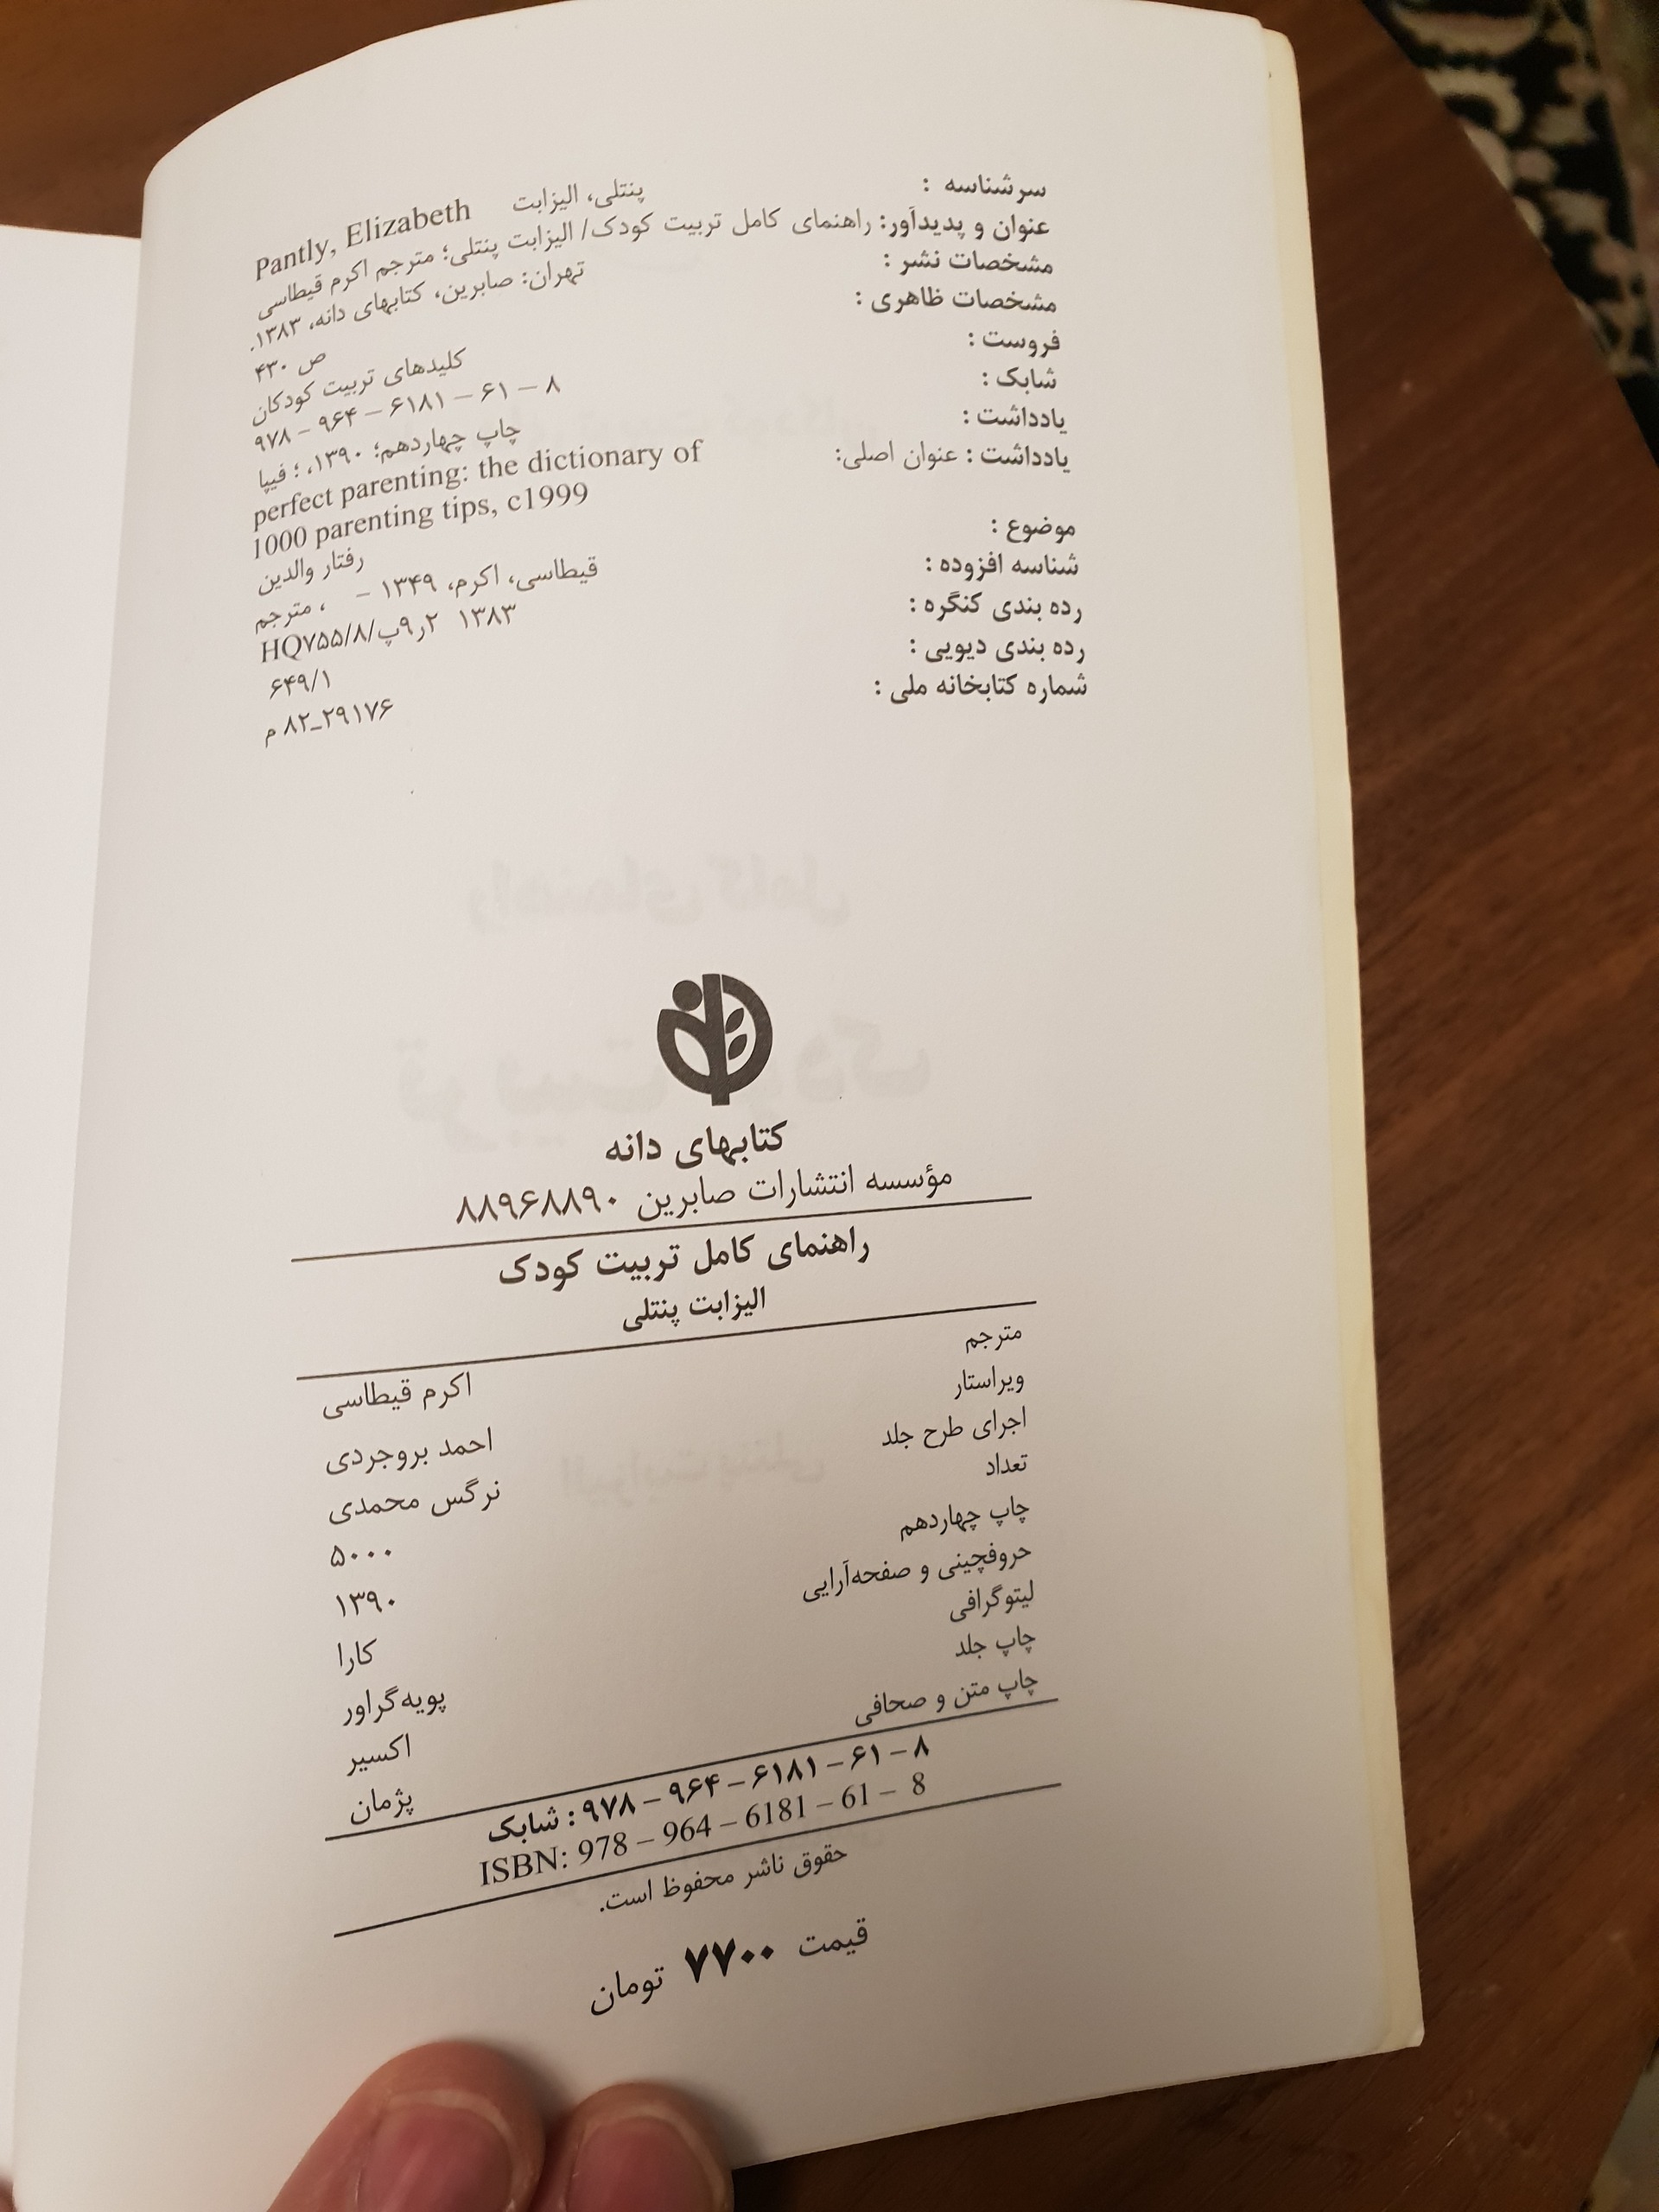 سرشناسه : پنتلی، الیزابت Pantly, Elizabeth
عنوان و پدیدآور: راهنمای کامل تربیت کودک/ الیزابت پنتلی؛ مترجم اکرم قیطاسی
مشخصات نشر : تهران: صابرین، کتابهای دانه، ۱۳۸۳.
مشخصات ظاهری : ۴۳۰ ص
فروست : کلیدهای تربیت کودکان
شابک : ۹۷۸ – ۹۶۴ – ۶۱۸۱ – ۶۱ – ۸
یادداشت : چاپ چهاردهم؛ ۱۳۹۰، ؛ فیپا
یادداشت : عنوان اصلی: perfect parenting: the dictionary of
1000 parenting tips, c1999
موضوع : رفتار والدین
شناسه افزوده : قیطاسی، اکرم، ۱۳۴۹ – ، مترجم
رده بندی کنگره : HQ۷۵۵/۸/پ۹ر۲ ۱۳۸۳
رده بندی دیویی : ۶۴۹/۱
شماره کتابخانه ملی : ۸۲_۲۹۱۷۶ م
کتابهای دانه
مؤسسه انتشارات صابرین ۸۸۹۶۸۸۹۰
راهنمای کامل تربیت کودک
الیزابت پنتلی
مترجم اکرم قیطاسی
ویراستار احمد بروجردی
اجرای طرح جلد نرگس محمدی
تعداد ۵۰۰۰
چاپ چهاردهم ۱۳۹۰
حروفچینی و صفحه‌آرایی کارا
لیتوگرافی پویه‌گراور
چاپ جلد اکسیر
چاپ متن و صحافی پژمان
شابک : ۹۷۸ – ۹۶۴ – ۶۱۸۱ – ۶۱ – ۸
ISBN: 978 – 964 – 6181 – 61 – 8
حقوق ناشر محفوظ است.
قیمت ۷۷۰۰ تومان